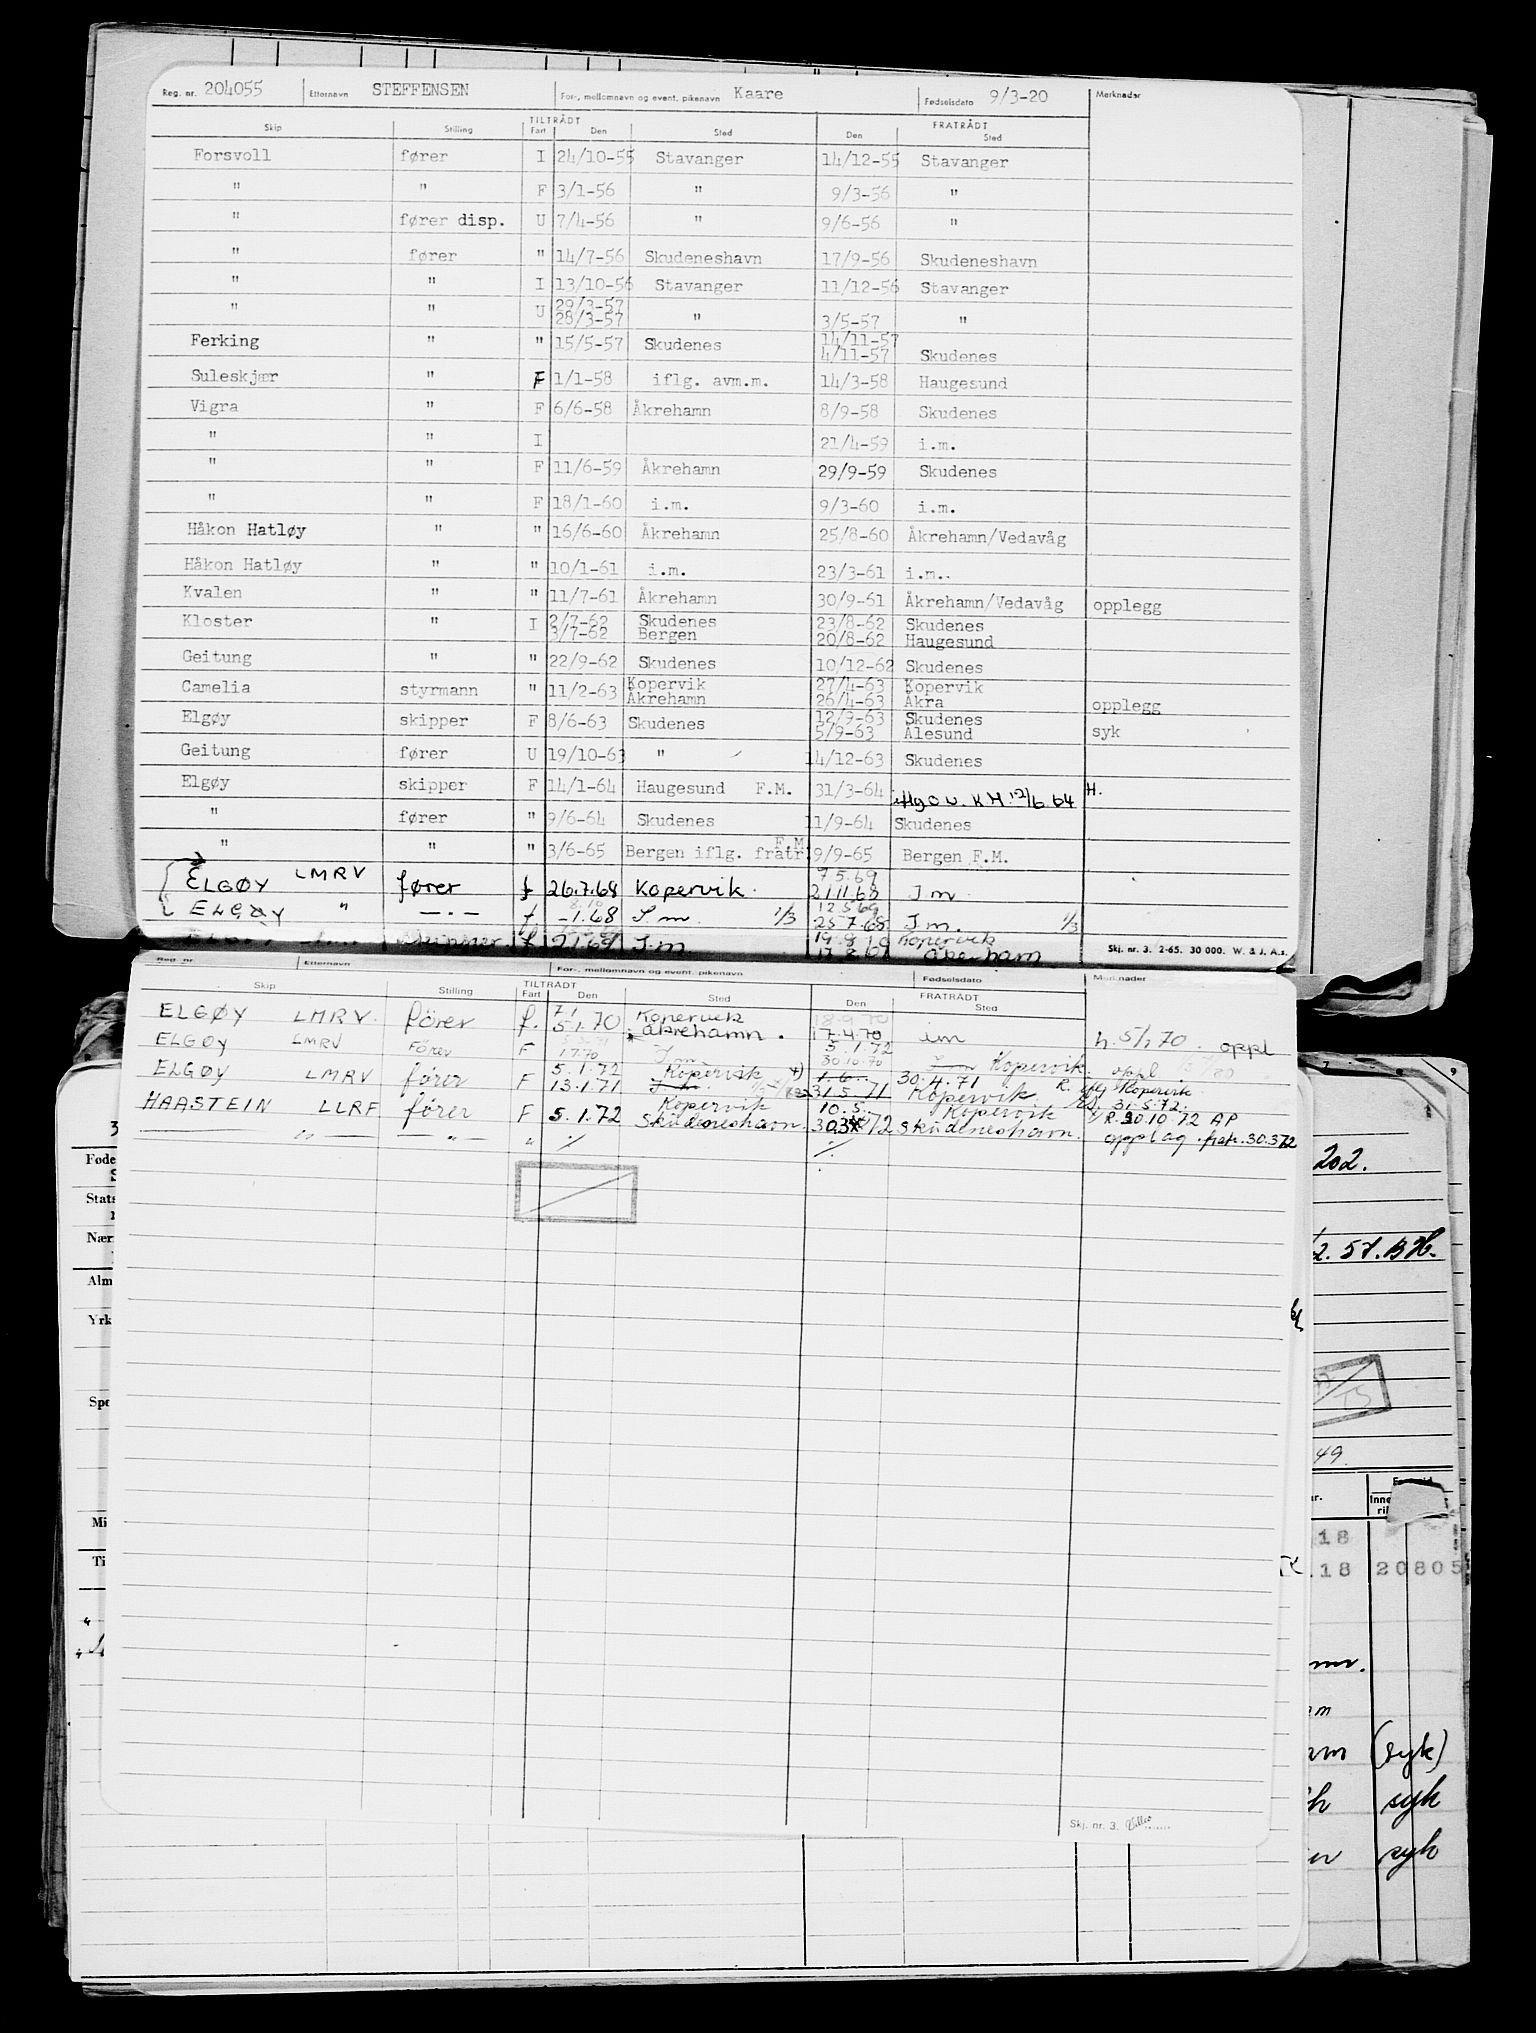 Reg. nr. 204055 Etternavn STEFFENSEN For-, mellomnavn og event. pikenavn Kaare Fødselsdato 9/3-20 Merknader
TILTRÅDT FRATRÅDT
Skip Stilling Fart Den Sted Den Sted
Forsvoll fører I 24/10-55 Stavanger 14/12-55 Stavanger
" " F 3/1-56 " 9/3-56 "
" fører disp. U 7/4-56 " 9/6-56 "
" fører " 14/7-56 Skudeneshavn 17/9-56 Skudeneshavn
" " I 13/10-56 Stavanger 11/12-56 Stavanger
" " U 29/3-57
28/3-57 " 3/5-57 "
Ferking " " 15/5-57 Skudenes 14/11-57
4/11-57 Skudenes
Suleskjær " F 1/1-58 iflg. avm.m. 14/3-58 Haugesund
Vigra " F 6/6-58 Åkrehamn 8/9-58 Skudenes
" " I 21/4-59 i.m.
" " F 11/6-59 Åkrehamn 29/9-59 Skudenes
" " F 18/1-60 i.m. 9/3-60 i.m.
Håkon Hatløy " " 16/6-60 Åkrehamn 25/8-60 Åkrehamn/Vedavåg
Håkon Hatløy " " 10/1-61 i.m. 23/3-61 i.m..
Kvalen " " 11/7-61 Åkrehamn 30/9-61 Åkrehamn/Vedavåg opplegg
Kloster " I 2/7-62 Skudenes 23/8-62 Skudenes
3/7-62 Bergen 20/8-62 Haugesund
Geitung " " 22/9-62 Skudenes 10/12-62 Skudenes
Camelia styrmann " 11/2-63 Kopervik 27/4-63 Kopervik
Åkrehamn 26/4-63 Åkra opplegg
Elgøy skipper F 8/6-63 Skudenes 12/9-63 Skudenes
5/9-63 Ålesund syk
Geitung fører U 19/10-63 " 14/12-63 Skudenes
Elgøy skipper F 14/1-64 Haugesund F.M. 31/3-64 K.H. 12/6 64 H.
" fører " 9/6-64 Skudenes 11/9-64 Skudenes
" " " 3/6-65 Bergen iflg. fratr. F.M 9/9-65 Bergen F.M.
9.5.69
ELGØY LMRV fører f 26.7.68 Kopervik. 21.11.68 I m
8.10 12.5.69
ELGØY " — " — f -1.68 I m. 1/3 25.7.68 I m. 1/3
19.8 Kopervik
skipper f 2.1.69 I.m. Åkerhamn
Skj. nr. 3. 2-65. 30 000. W. & J. A.s.
Reg. nr Etternavn For-, mellomnavn og event. pikenavn Fødselsdato Merknader
TILTRÅDT FRATRÅDT
Skip Stilling Fart Den Sted Den Sted
7.1 Kopervik 18.9.70
ELGØY LMRV. förer f. 5.1.70 Åkrehamn. 17.4.70 im h. 5/1 70. oppl
5.1.72
ELGØY LMRV Förer F 1.7.70 I m 30.10.70 I m Kopervik oppl
5.1.72 Kopervik 1.6.. 30.4.71 Kopervik
ELGØY LMRV förer F 13.1.71 31.5.71 Kopervik. 31.5.72.
Kopervik 10.5. Kopervik R.30.10.72 AP
HAASTEIN LLRF förer F 5.1.72 Skudeneshavn. 30.3.72 Skudeneshavn. opplag. fratr. 30.3.72
— " — — " — "
Skj. nr. 3.
7 8 9
Føde
Stats
Nær
Alm
Yrk
Spe
Mi
Ti
202.
2.57.
49.
Inne
18
.18 20805
(syk)
syk
syk